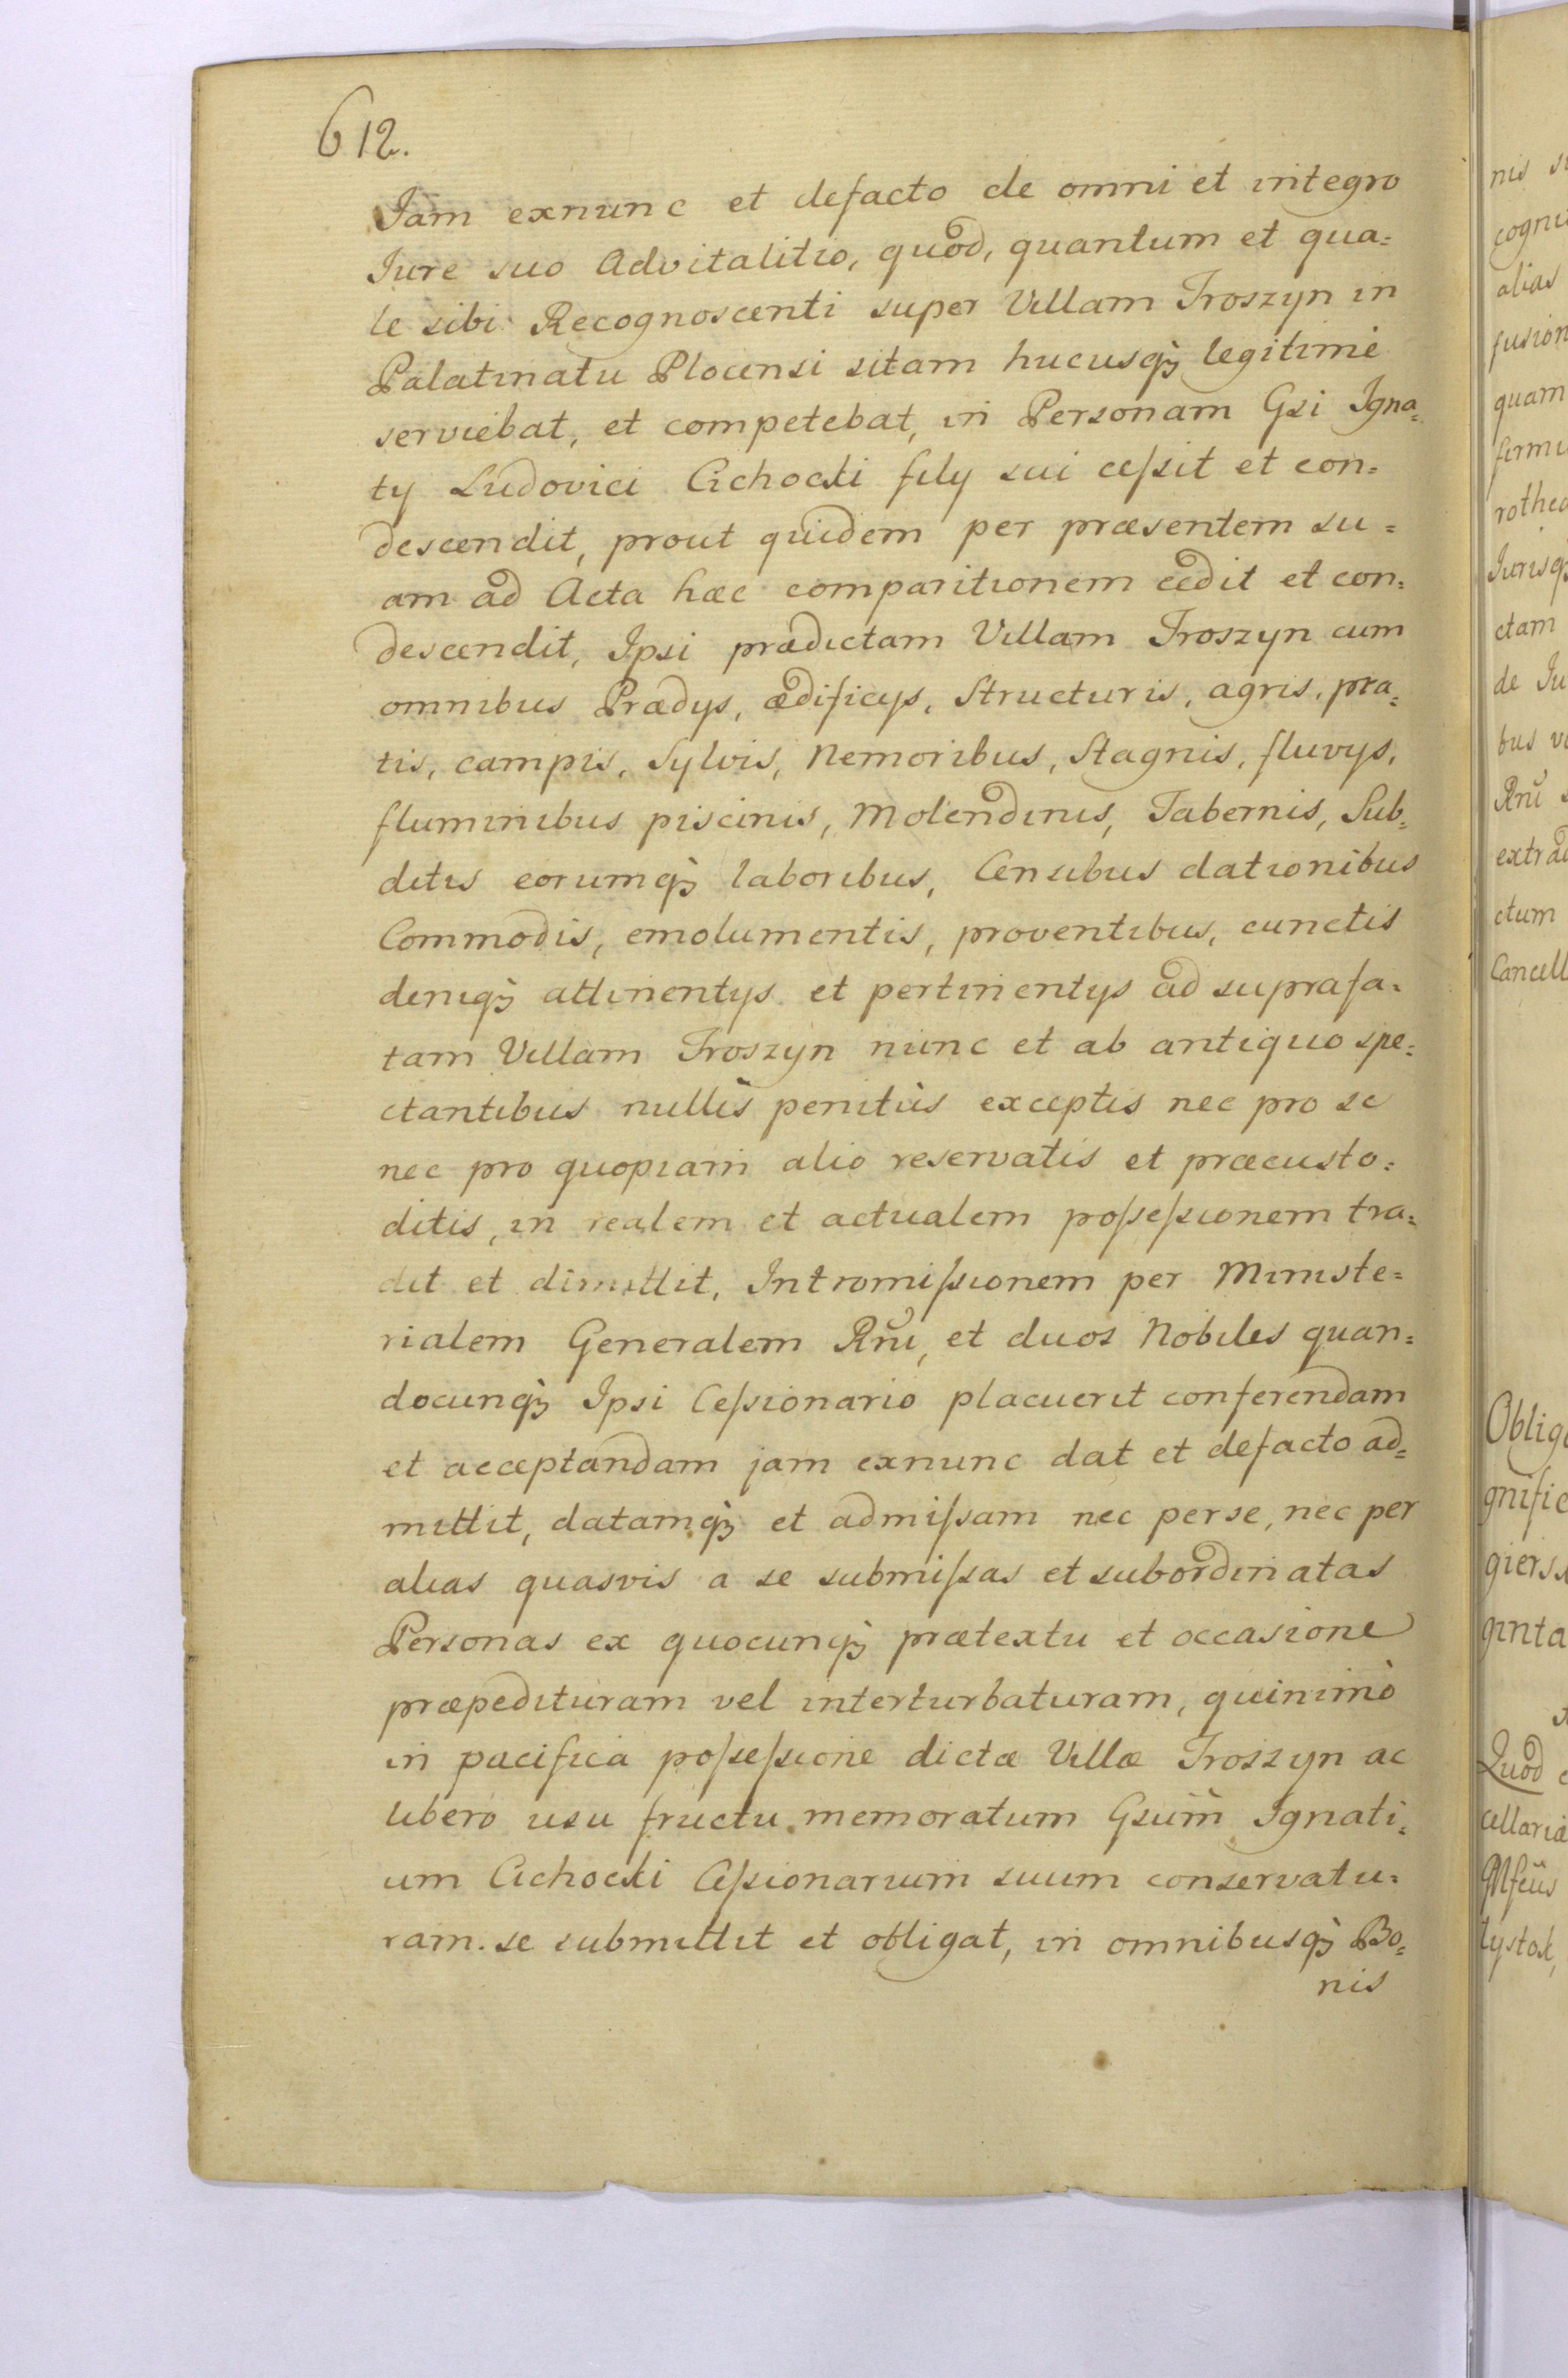 612.
Jam exnunc et defacto de omni et integro
Jure suo Advitalitio, quod, quantum et qua=
le sibi Recognoscenti super Villam Troszyn in
Palatinatu Plocensi sitam hucusqꝫ legitimè
serviebat, et competebat, in Personam Gsi Igna=
tij Ludovici Cichocki filij sui cessit et con=
descendit, prout quidem per præsentem su=
am ad Acta hæc comparitionem cedit et con=
descendit, Ipsi prædictam Villam Troszyn cum
omnibus Prædijs, ædificijs, Structuris, agris, pra=
tis, campis, Sylvis, Nemoribus, Stagnis, fluvijs,
fluminibus piscinis, Molendinis, Tabernis, Sub=
ditis eorumqꝫ laboribus, Censibus dationibus
Commodis, emolumentis, proventibus, cunctis
deniqꝫ attinentijs et pertinentijs ad suprafa=
tam Villam Troszyn nunc et ab antiquo spe=
ctantibus nullis penitùs exceptis nec pro se
nec pro quopiam alio reservatis et præcusto=
ditis, in realem et actualem possessionem tra=
dit et dimittit, Intromissionem per Ministe=
rialem Generalem Rñi, et duos Nobiles quan=
docunqꝫ Ipsi Cessionario placuerit conferendam
et acceptandam jam exnunc dat et defacto ad=
mittit, datamqꝫ et admissam nec perse, nec per
alias quasvis a se submissas et subordinatas
Personas ex quocunqꝫ prætextu et occasione
præpedituram vel interturbaturam, quinimò
in pacifica possessione dictæ Villæ Troszyn ac
libero usu fructu memoratum Gsum̃ Ignati=
um Cichocki Cessionarium suum conservatu=
ram se submittit et obligat, in omnibusqꝫ Bo=
nis
nis
alias
fusion
quam
ctam
de Ju
Rñi
ctum
Cancell
Oblig
gnific
giers
ginta
Quod
cellaria